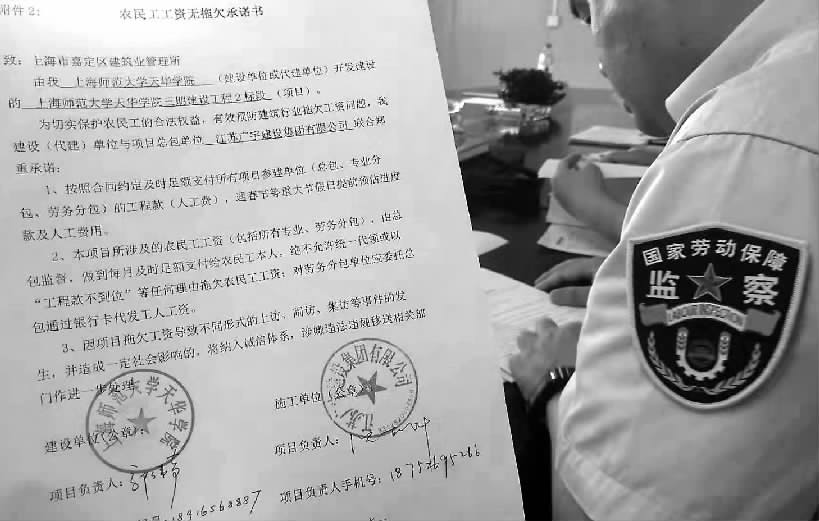 附件2：
农民工工资无拖欠承诺书
致：上海市嘉定区建筑业管理所
由我 上海师范大学天华学院 （建设单位或代建单位）开发建设
的 上海师范大学天华学院三期建设工程2标段 （项目）。
为切实保护农民工的合法权益，有效预防建筑行业拖欠工资问题，我
建设（代建）单位与项目总包单位 江苏广宇建设集团有限公司 联合郑
重承诺：
1、按照合同约定及时足额支付所有项目参建单位（总包、专业分
包、劳务分包）的工程款（人工费），遇春节等重大节假日提前预估进度
款及人工费用。
2、本项目所涉及的农民工工资（包括所有专业、劳务分包），由总
包监督，做到每月及时足额支付给农民工本人；绝不允许统一代领或以
“工程款不到位”等任何理由拖欠农民工工资；对劳务分包单位应委托总
包通过银行卡代发工人工资。
3、因项目拖欠工资导致不同形式的上访、闹访、集访等事件的发
生，并造成一定社会影响的，将纳入诚信体系，涉嫌违法违规移送相关部
门作进一步处理。
建设单位（公章）：
上海师范大学天华学院
施工单位（公章）
建设集团有限公司
项目负责人：
项目负责人：
项目负责人手机号：
国家劳动保障
监察
LABOUR INSPECTION